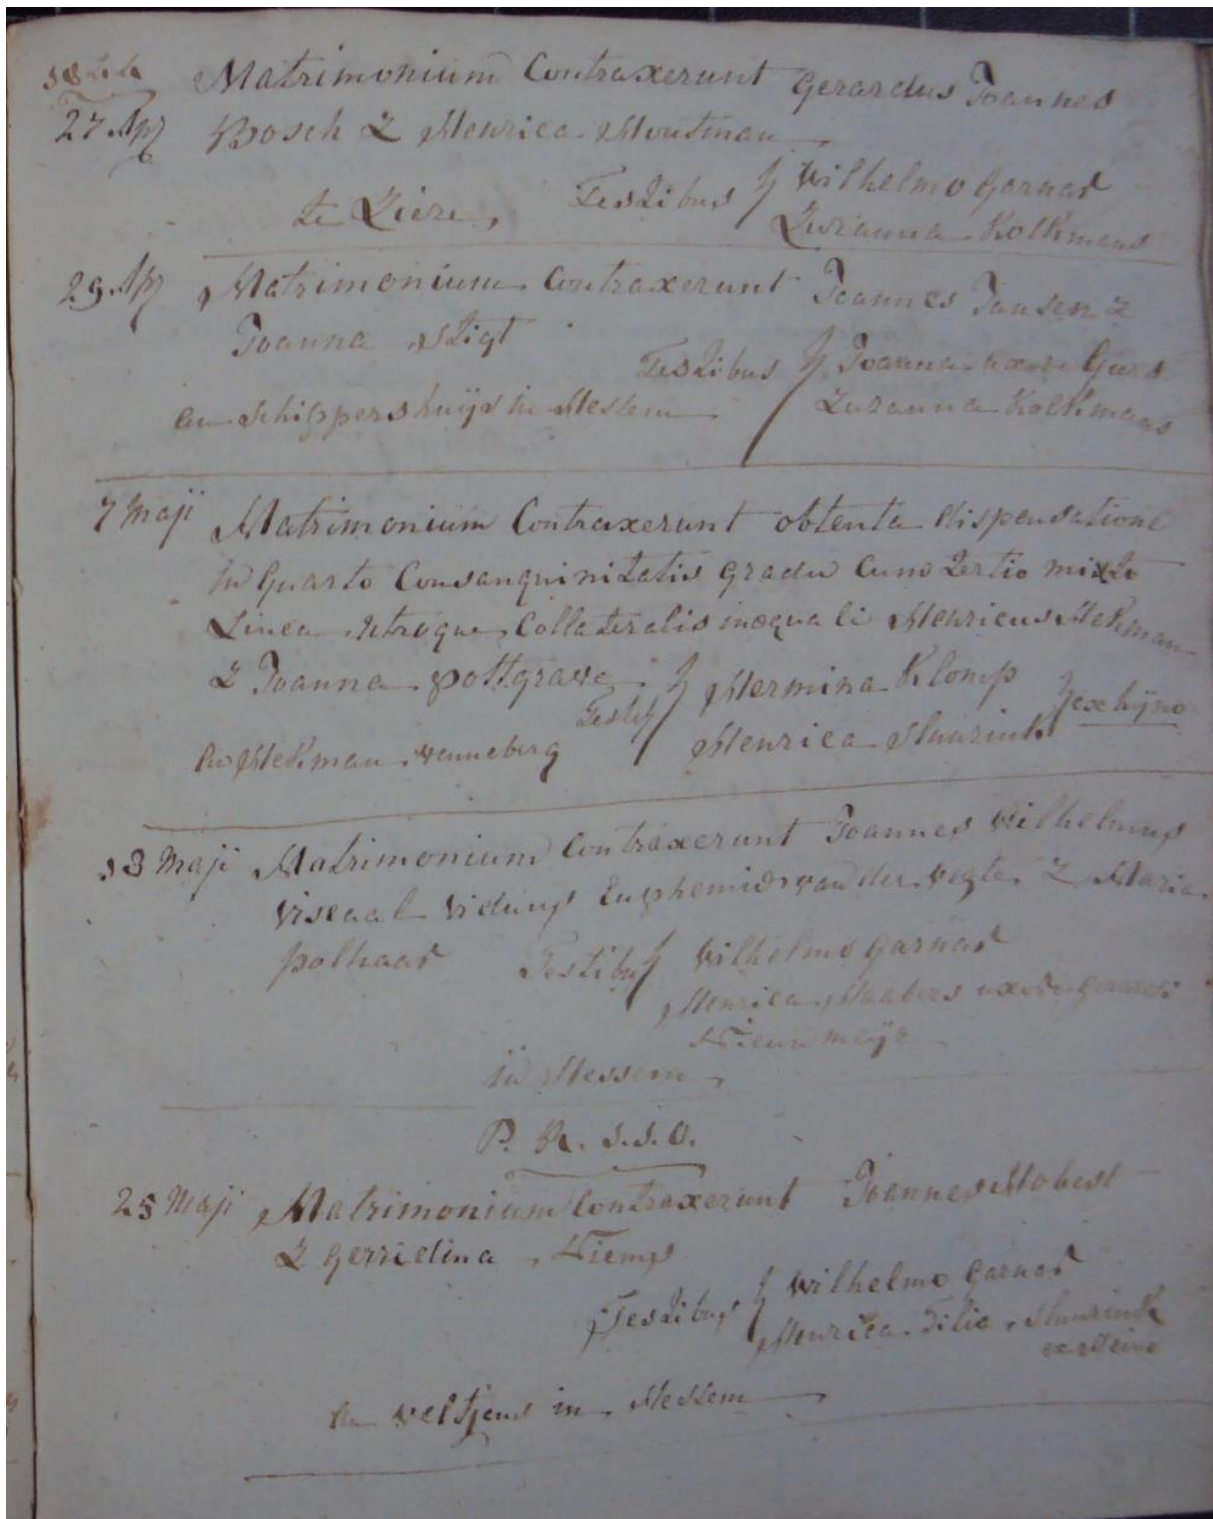 27 Apr Matrimonium Contraxerunt Gerardus Joannes
Bosch & Henrica Houtman
Testibus Wilhelmo Garnar
te Liere, Zuzanna Kolkmans
29 Apr Matrimonium Contraxerunt Joannes Jansen &
Joanna Stigt
Testibus Joanna uxore Geurs
Schippershuijs in Hessem Zuzanna Kolkmans
7 Maji Matrimonium Contraxerunt obtenta dispensatione
in Quarto Consanguinitatis gradu Cum tertio mixto
Linea utroque Collateralis inaequali Henricus Hekman
& Joanna pottgrave Hermina Klomp
Testib ex hijno
Hekman wanneberg Henrica Huurink
13 Maji Matrimonium Contraxerunt Joannes Wilhelmus
Viscaal Viduus Euphemiae van der vegte & Maria
polhaar Testibus Wilhelmo Garnar
Henrica Haabers uxore Gerardi
Nieuwmeijr
in Hessem
P. R. S. S. O.
25 Maji Matrimonium Contraxerunt Joannes Hobest
& Gerridina Niems
Testibus Wilhelmo Garnar
Henrica Filia Huurink
ex Heino
veltjens in Hessem